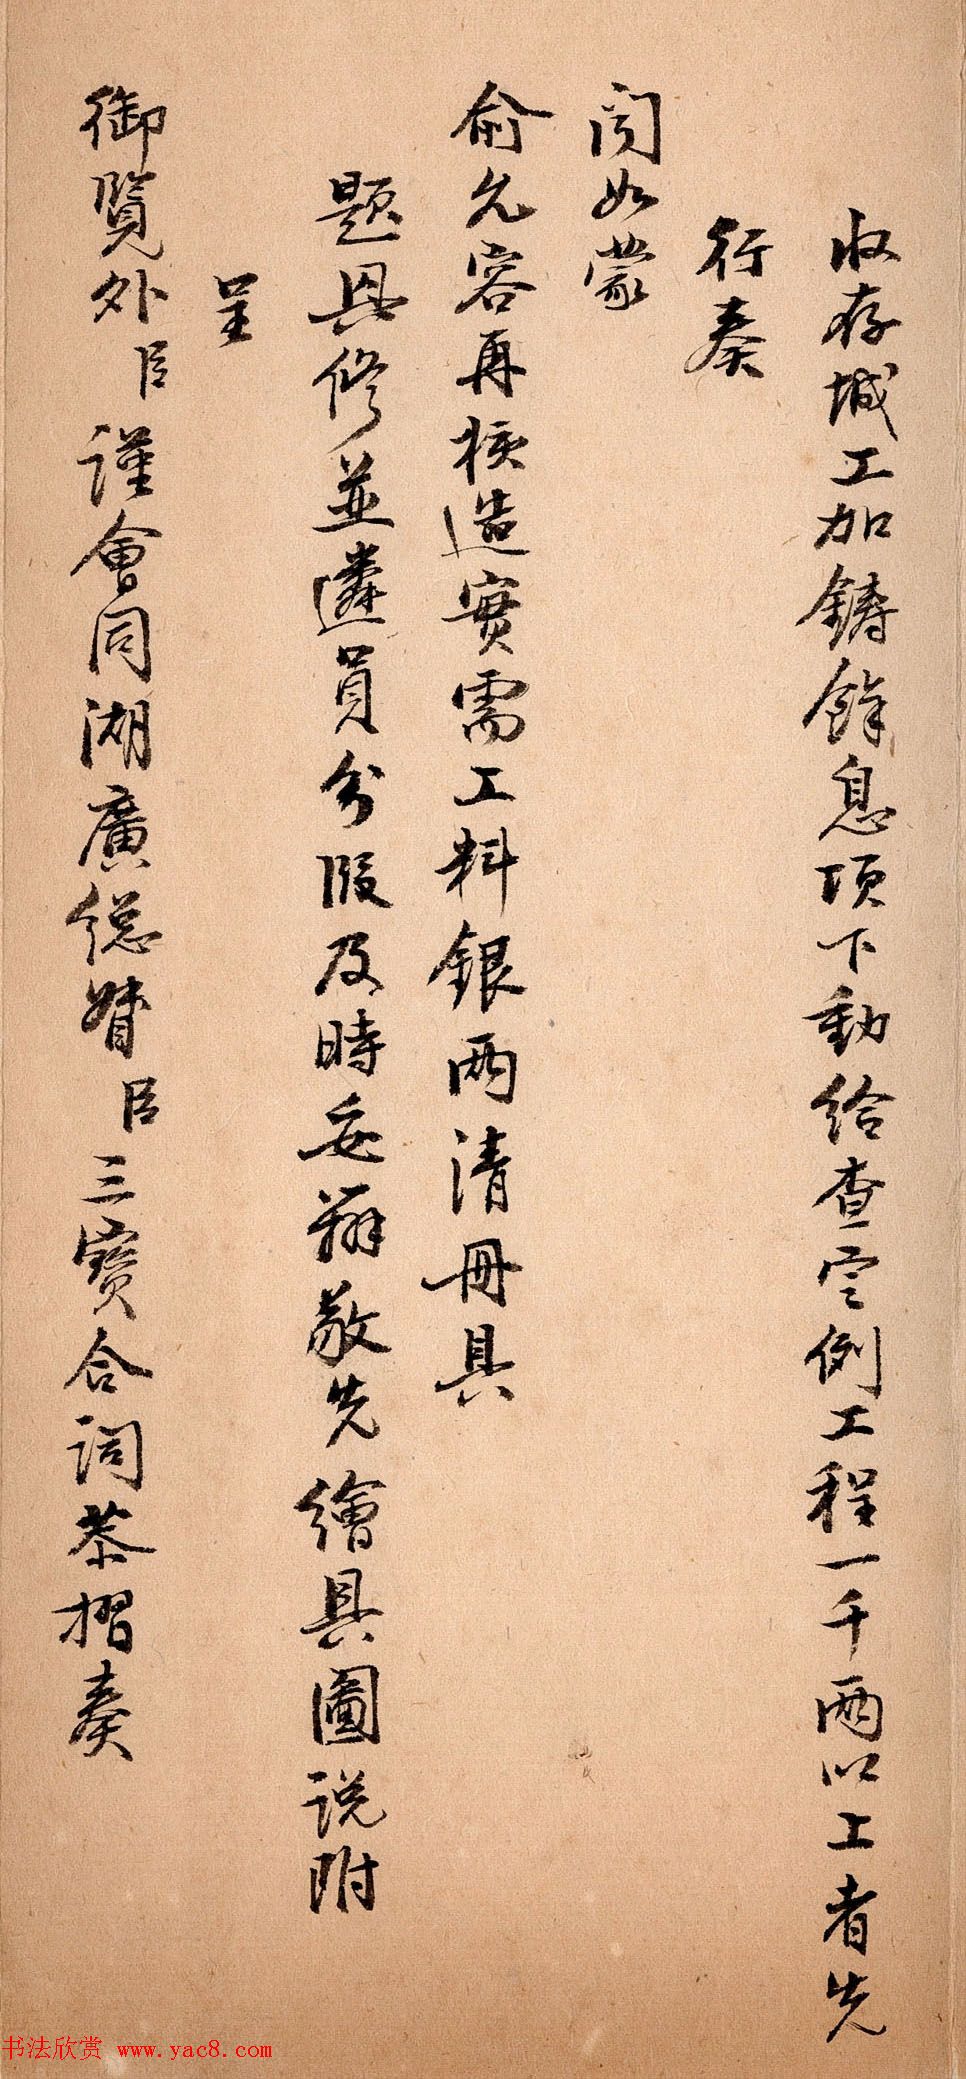 收存城工加鑄餘息項下動給查定例工程一千兩以上者先
行奏
聞如蒙
俞允容再核造實需工料銀兩清冊具
題具修並遴員分段及時妥辦敬先繪具圖說附
呈
御覽外臣謹會同湖廣總督臣三寶合詞恭摺奏
书法欣赏 www.yac8.com